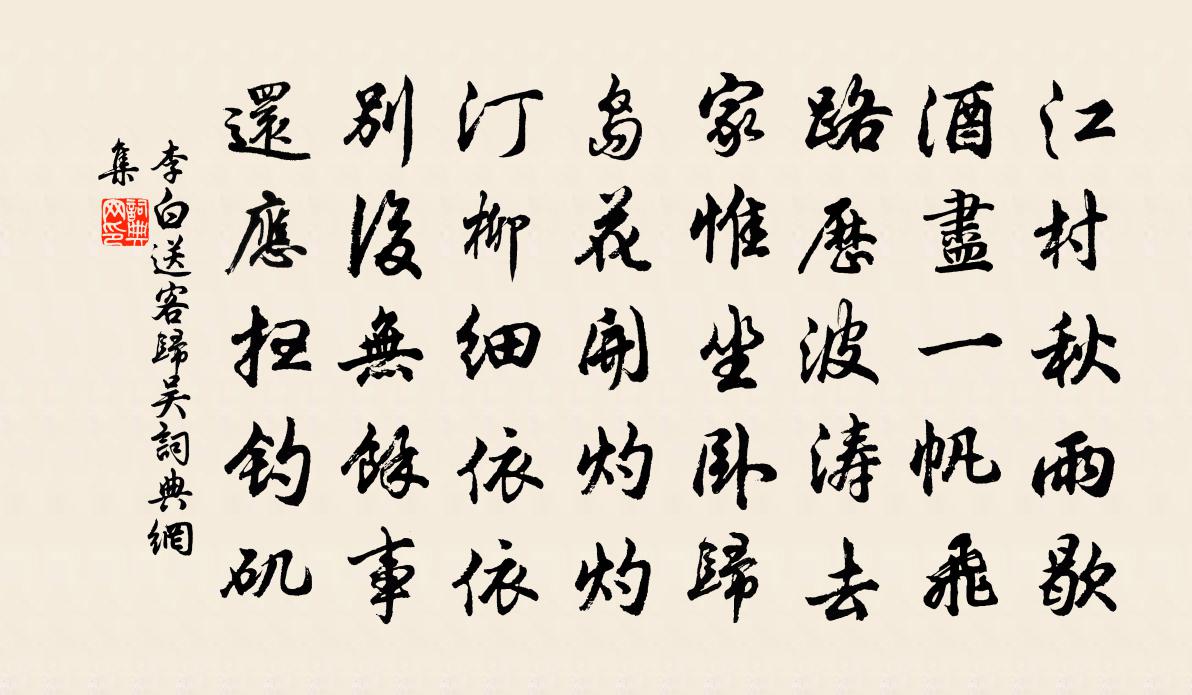 江村秋雨歇
酒盡一帆飛
路歷波涛去
家惟坐卧歸
島花開灼灼
汀柳細依依
別後無餘事
還應扫釣矶
李白送客歸吴詞典網
集
詞典
网印